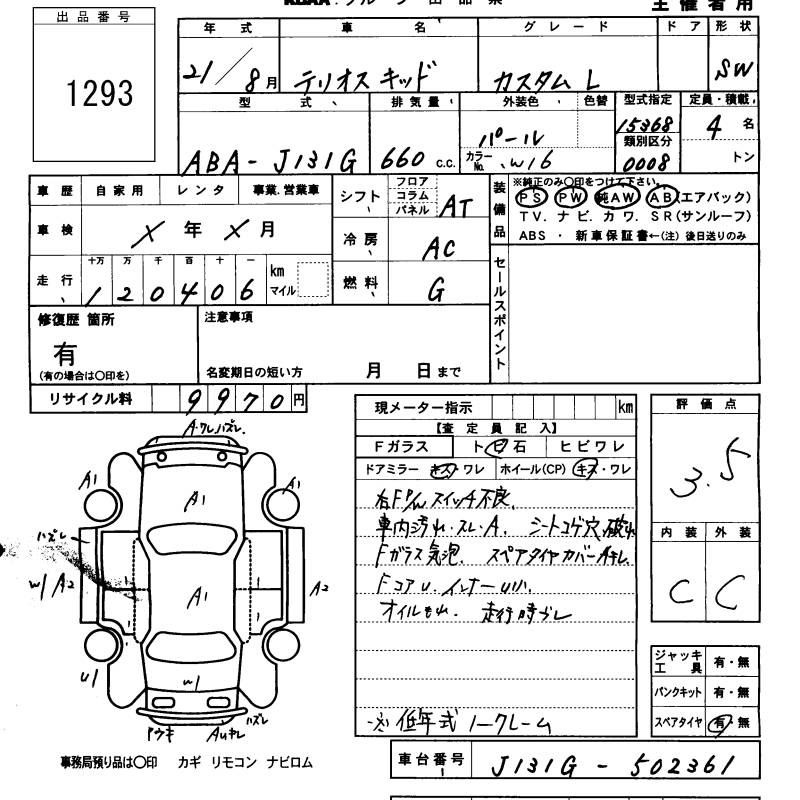 主催者用
出品番号
1293
年式 車名 グレード ドア 形状
21/8月 テリオスキッド カスタムL SW
型式 排気量 外装色 色替 型式指定 定員・積載
ABA-J131G 660 c.c. パール カラーNo. W16 15368 類別区分 0008 4名 トン
車歴 自家用 レンタ 事業.営業車
車検 X年 X月
走行 十万 万 千 百 十 一
120406 km マイル
シフト フロア コラム パネル AT
冷房 AC
燃料 G
装備品
※純正のみ〇印をつけて下さい。
PS PW 純AW AB(エアバック)
TV. ナビ. カワ. SR(サンルーフ)
ABS ・ 新車保証書←(注) 後日送りのみ
セールスポイント
修復歴 箇所
有
(有の場合は〇印を)
注意事項
名変期日の短い方 月 日まで
リサイクル料 9970円
現メーター指示 km
【査定員記入】
Fガラス ト日石 ヒビワレ
ドアミラー キズ・ワレ ホイール(CP) キズ・ワレ
右F P/W スイッチ不良.
車内汚れ.スレ.A. シートコゲ穴.破れ
Fガラス気泡. スペアタイヤカバーAキレ.
FコアU. インナーU小
オイルもれ. 走行時ブレ
※低年式ノークレーム
評価点
3.5
内装 外装
C C
ジャッキ工具 有・無
パンクキット 有・無
スペアタイヤ 有・無
車台番号 J131G-502361
Aワレハズレ
A1
A1
A1
ハズレ
W1A2
A1
A2
U1
W1
ハズレ
事務局預り品は〇印 カギ リモコン ナビロム